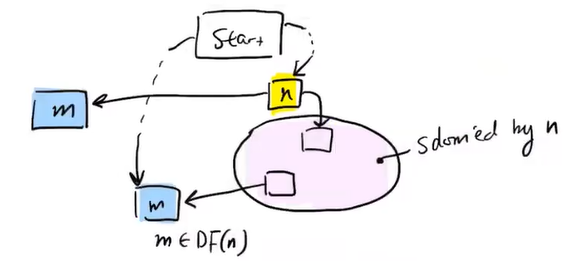 Start
n
m
sdom'ed by n
m
m ∈ DF(n)